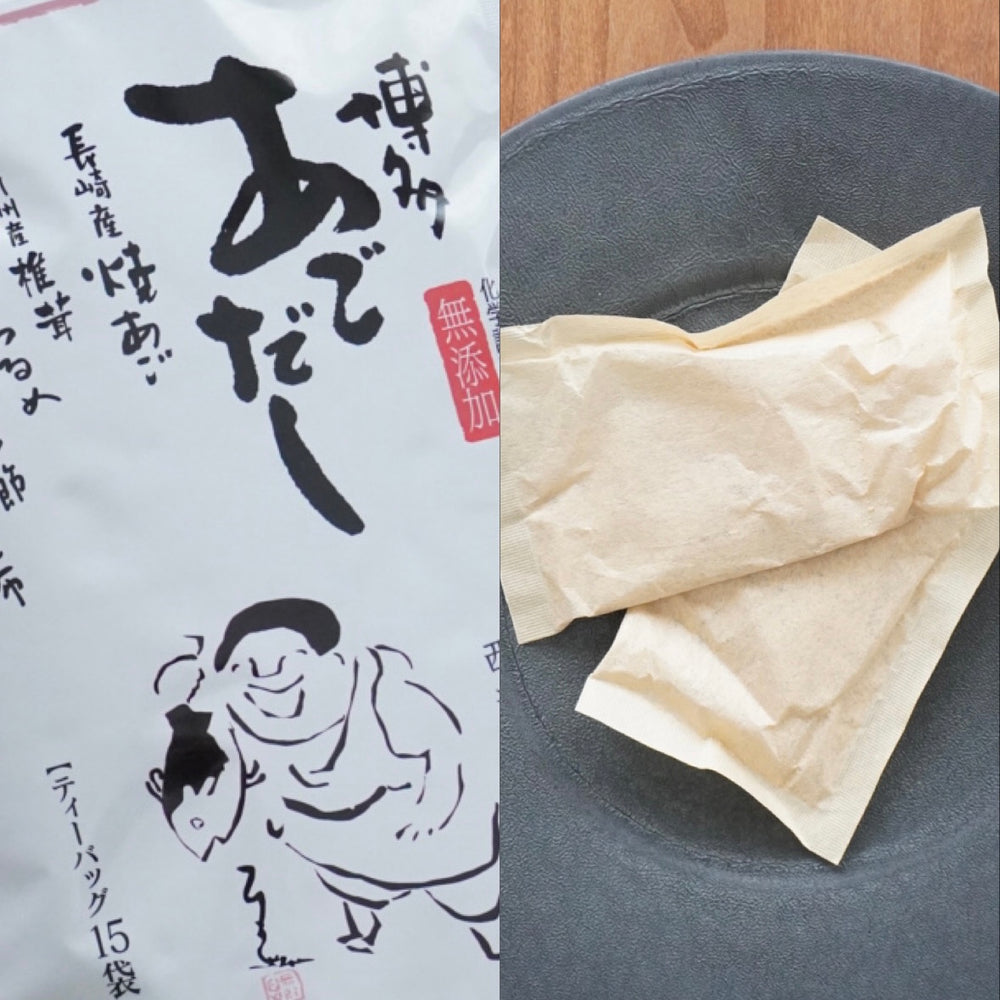 博多
あでだし
無添加
化学
長崎産 焼あご
州産 椎茸
るめ
節
布
西
【ティーバッグ15袋